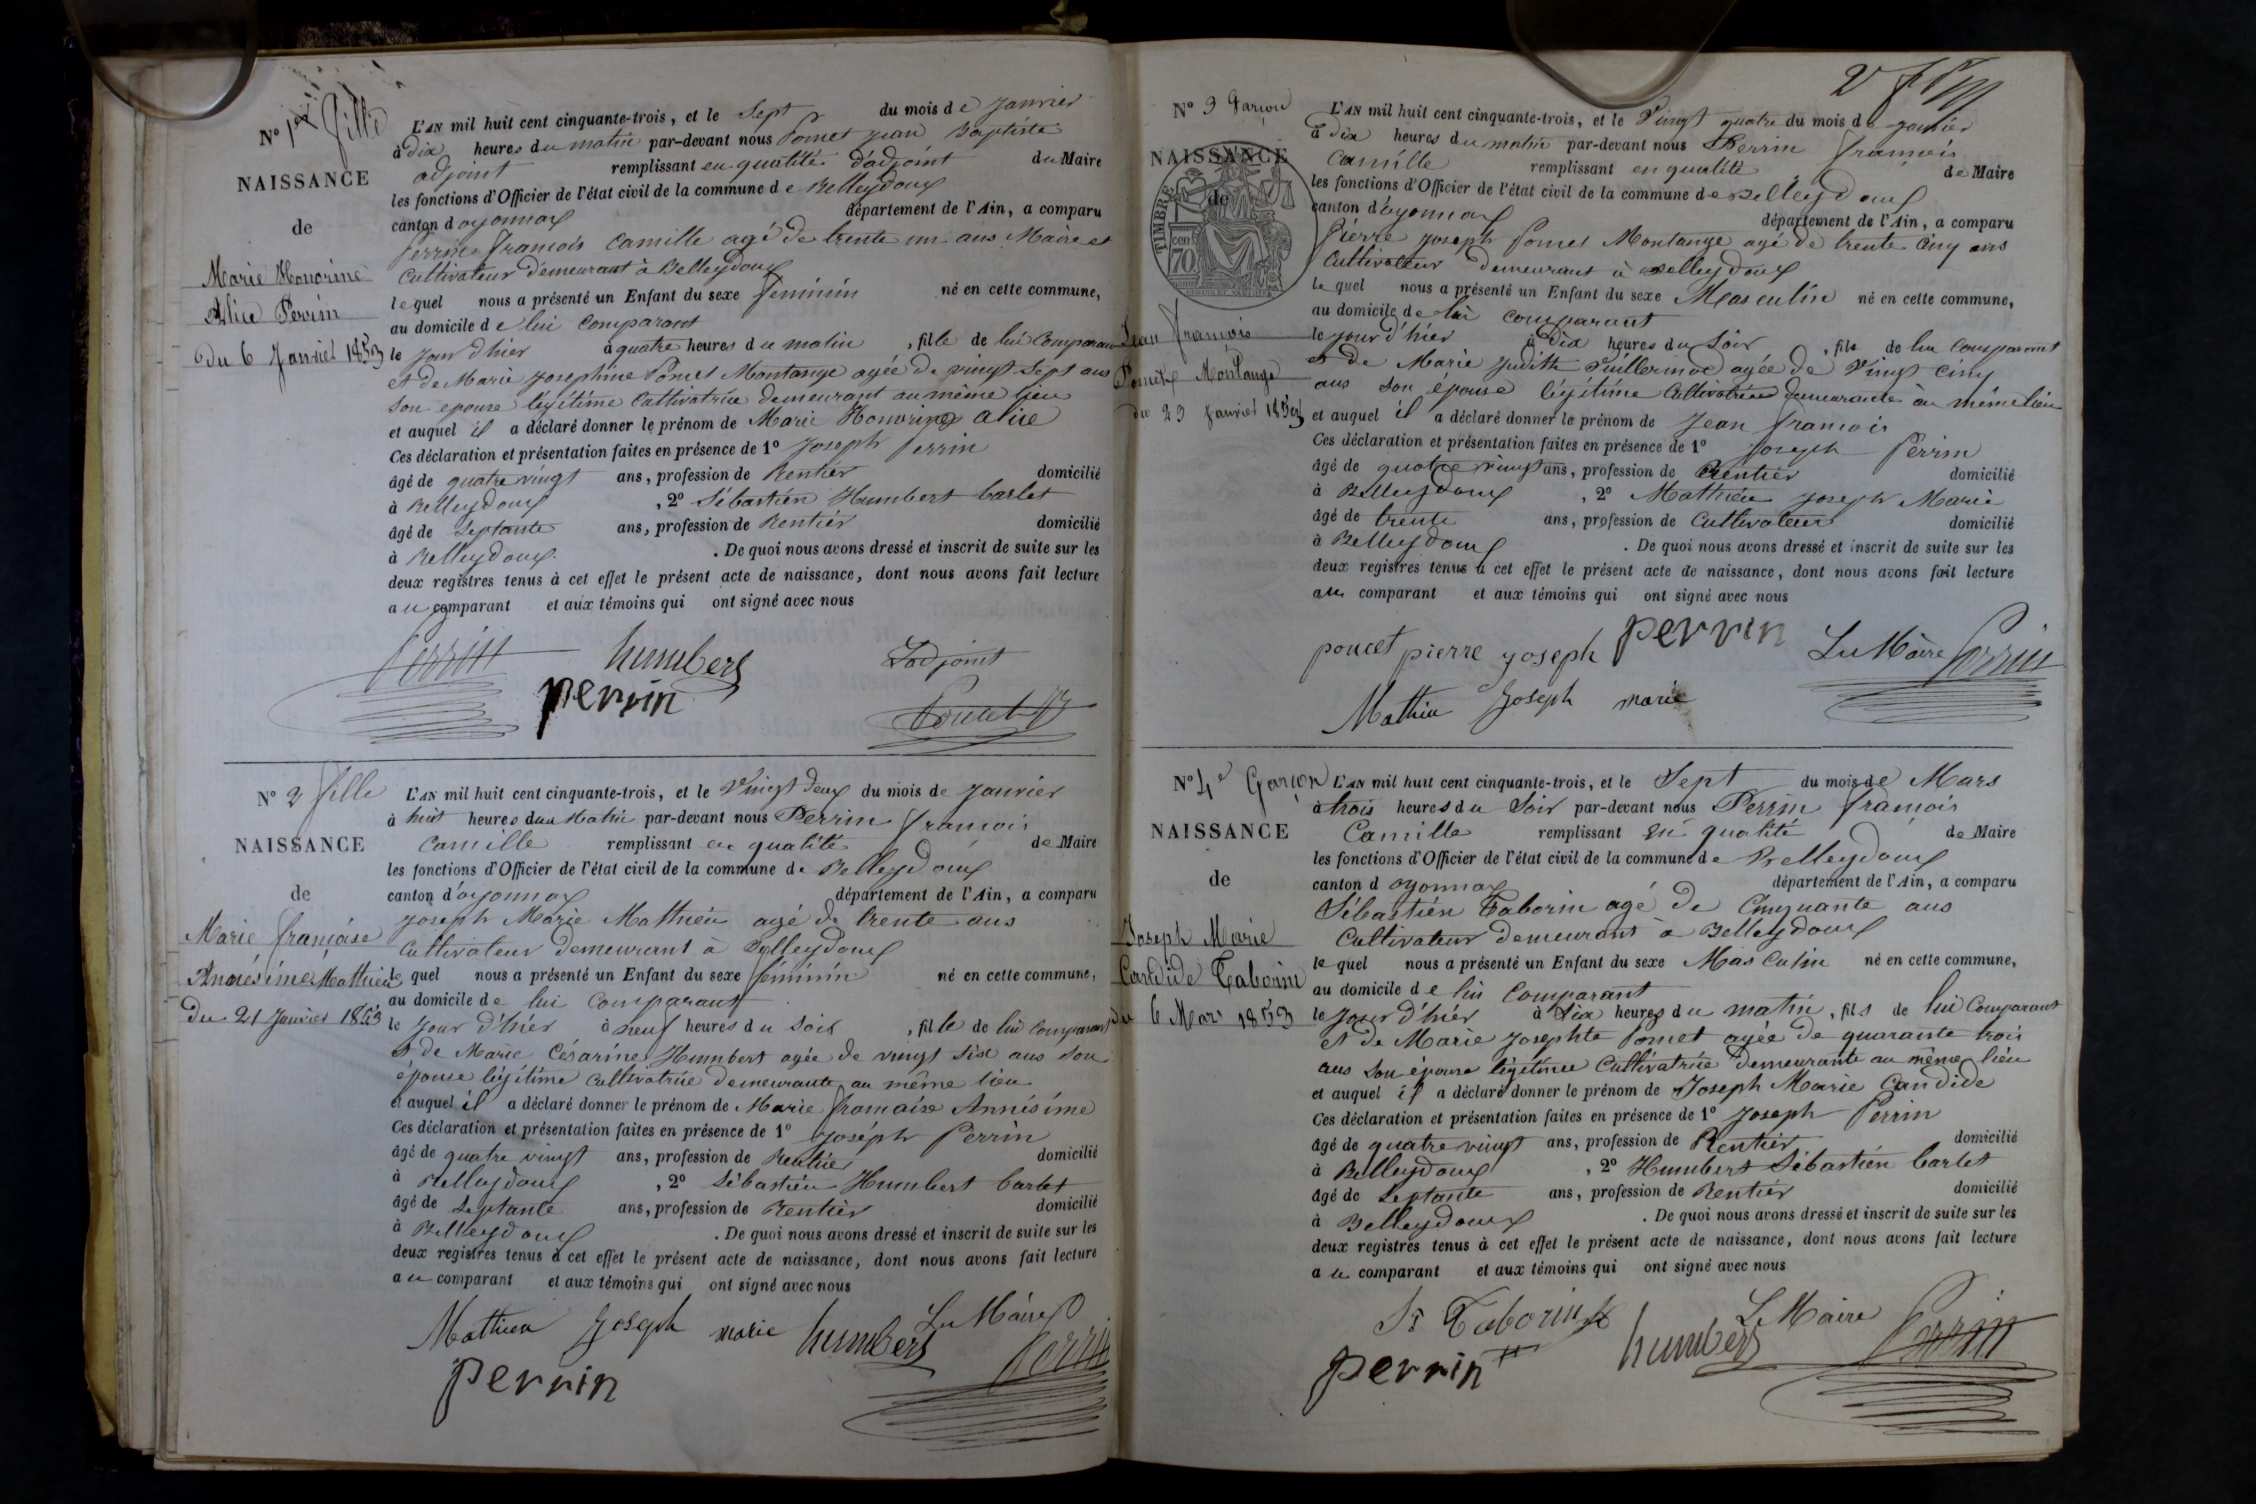 N° 1er fille
NAISSANCE
de
Marie Honorine
Alice Perrin
du 6 Janvier 1853
L'AN mil huit cent cinquante-trois, et le Sept du mois de Janvier
à dix heures du matin par-devant nous Poncet jean Baptiste
adjoint remplissant en qualité d'adjoint du Maire
les fonctions d'Officier de l'état civil de la commune de Belleydoux
canton d'oyonnax département de l'Ain, a comparu
Perrin françois Camille agé de trente un ans Maire et
Cultivateur demeurant à Belleydoux
lequel nous a présenté un Enfant du sexe féminin né en cette commune,
au domicile de lui Comparant
le jour d'hier à quatre heures du matin, fille de lui Comparant
et de Marie Josephine Poncet Montange agée de vingt sept ans
son epouse légitime Cultivatrice demeurant au même lieu
et auquel il a déclaré donner le prénom de Marie Honorine alice
Ces déclaration et présentation faites en présence de 1° Joseph Perrin
âgé de quatre vingt ans, profession de Rentier domicilié
à Belleydoux, 2° Sébastien Humbert barlet
âgé de Septante ans, profession de Rentier domicilié
à Belleydoux. De quoi nous avons dressé et inscrit de suite sur les
deux registres tenus à cet effet le présent acte de naissance, dont nous avons fait lecture
au comparant et aux témoins qui ont signé avec nous
Perrin humbert L'adjoint
perrin Poncet
N° 2 fille
NAISSANCE
de
Marie françoise
Annésime Mathieu
du 21 Janvier 1853
L'AN mil huit cent cinquante-trois, et le Vingt deux du mois de Janvier
à huit heures du Matin par-devant nous Perrin françois
Camille remplissant en qualité de Maire
les fonctions d'Officier de l'état civil de la commune de Belleydoux
canton d'oyonnax département de l'Ain, a comparu
Joseph Marie Mathieu agé de trente ans
Cultivateur demeurant à Belleydoux
lequel nous a présenté un Enfant du sexe féminin né en cette commune,
au domicile de lui Comparant
le jour d'hier à neuf heures du soir, fille de lui Comparant
et de Marie Césarine Humbert agée de vingt six ans son
épouse légitime Cultivatrice demeurante au même lieu
et auquel il a déclaré donner le prénom de Marie françoise Annésime
Ces déclaration et présentation faites en présence de 1° Joséph Perrin
âgé de quatre vingt ans, profession de Rentier domicilié
à Belleydoux, 2° Sébastien Humbert barlet
âgé de Septante ans, profession de Rentier domicilié
à Belleydoux. De quoi nous avons dressé et inscrit de suite sur les
deux registres tenus à cet effet le présent acte de naissance, dont nous avons fait lecture
au comparant et aux témoins qui ont signé avec nous
Mathieu Joseph marie humbert Le Maire
perrin Perrin
2
N° 3 Garçon
NAISSANCE
de
TIMBRE
70 cent
Jean françois
Poncet Montange
du 23 Janvier 1853
L'AN mil huit cent cinquante-trois, et le Vingt quatre du mois de janvier
à dix heures du matin par-devant nous Perrin françois
Camille remplissant en qualité de Maire
les fonctions d'Officier de l'état civil de la commune de Belleydoux
canton d'oyonnax département de l'Ain, a comparu
Pierre Joseph Poncet Montange agé de trente cinq ans
Cultivateur demeurant à Belleydoux
lequel nous a présenté un Enfant du sexe Masculin né en cette commune,
au domicile de lui comparant
le jour d'hier à Dix heures du Soir, fils de lui Comparant
et de Marie Judith Puillerinod agée de Vingt cinq
ans son epouse légitime Cultivatrice demeurante au même lieu
et auquel il a déclaré donner le prénom de Jean françois
Ces déclaration et présentation faites en présence de 1° Joseph Perrin
âgé de quatre vingt ans, profession de Rentier domicilié
à Belleydoux, 2° Mathieu Joseph Marie
âgé de trente ans, profession de Cultivateur domicilié
à Belleydoux. De quoi nous avons dressé et inscrit de suite sur les
deux registres tenus à cet effet le présent acte de naissance, dont nous avons fait lecture
au comparant et aux témoins qui ont signé avec nous
poncet pierre joseph perrin Le Maire Perrin
Mathieu Joseph marie
N° 4e Garçon
NAISSANCE
de
Joseph Marie
Candide Taborin
du 6 Mars 1853
L'AN mil huit cent cinquante-trois, et le Sept du mois de Mars
à trois heures du Soir par-devant nous Perrin françois
Camille remplissant en qualité de Maire
les fonctions d'Officier de l'état civil de la commune de Belleydoux
canton d oyonnax département de l'Ain, a comparu
Sébastien Taborin agé de Cinquante ans
Cultivateur demeurant à Belleydoux
lequel nous a présenté un Enfant du sexe Masculin né en cette commune,
au domicile de lui Comparant
le jour d'hier à dix heures du matin, fils de lui Comparant
et de Marie Josephte Poncet agée de quarante trois
ans son épouse légitime Cultivatrice demeurante au même lieu
et auquel il a déclaré donner le prénom de Joseph Marie Candide
Ces déclaration et présentation faites en présence de 1° Joseph Perrin
âgé de quatre vingt ans, profession de Rentier domicilié
à Belleydoux, 2° Humbert Sébastien barlet
âgé de Septante ans, profession de Rentier domicilié
à Belleydoux. De quoi nous avons dressé et inscrit de suite sur les
deux registres tenus à cet effet le présent acte de naissance, dont nous avons fait lecture
au comparant et aux témoins qui ont signé avec nous
St Taborin Le Maire
perrin humbert Perrin